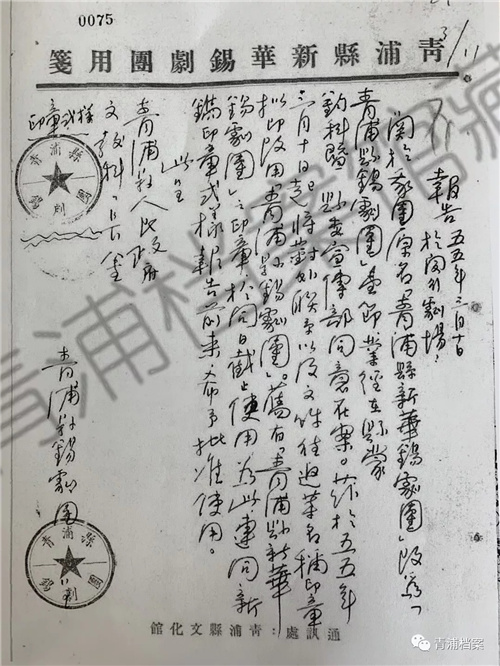 0075
箋用團劇錫華新縣浦青
3/11
報告 五五年三月十日
於閔行劇場
關於我團原名「青浦縣新華錫劇團」改為「
青浦縣錫劇團」
縣委宣傳部同意在案。茲於五五年
三月十日起將對外聯系以及文件往返業名稱印章
擬即改用「青浦縣錫劇團」。舊有「青浦縣新華
錫劇團」之印章於同日截止使用為此連同新
鐫印章式樣報告前來希予批准使用。
此呈
青浦縣人民政府
文教科
印章式樣
青浦縣
錫劇團
青浦縣錫劇團
青浦縣
錫劇團
館化文縣浦青：處訊通
青浦档案馆藏
青浦档案